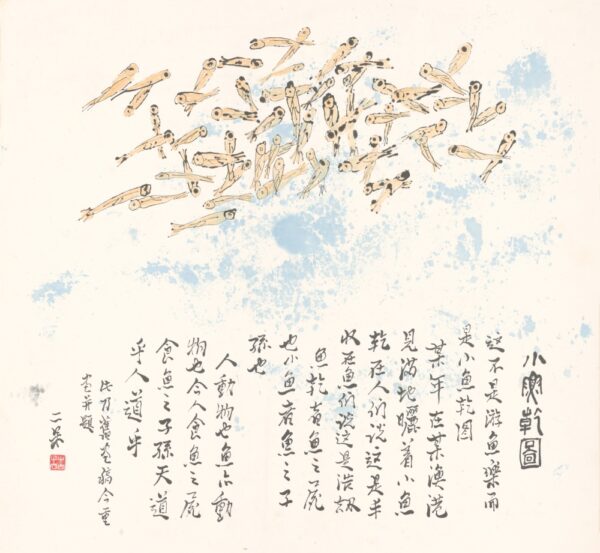 小魚乾圖
這不是游魚樂而
是小魚乾圖
某年在某漁港
見滿地曬着小魚
乾在人们说這是丰
收在魚们说這是浩劫
魚乾者魚之屍
也小魚者魚之子
孫也
人動物也魚亦動
物也今人食魚之屍
食魚之子孫天道
乎人道乎
此乃舊畫稿今重
畫并題
二呆